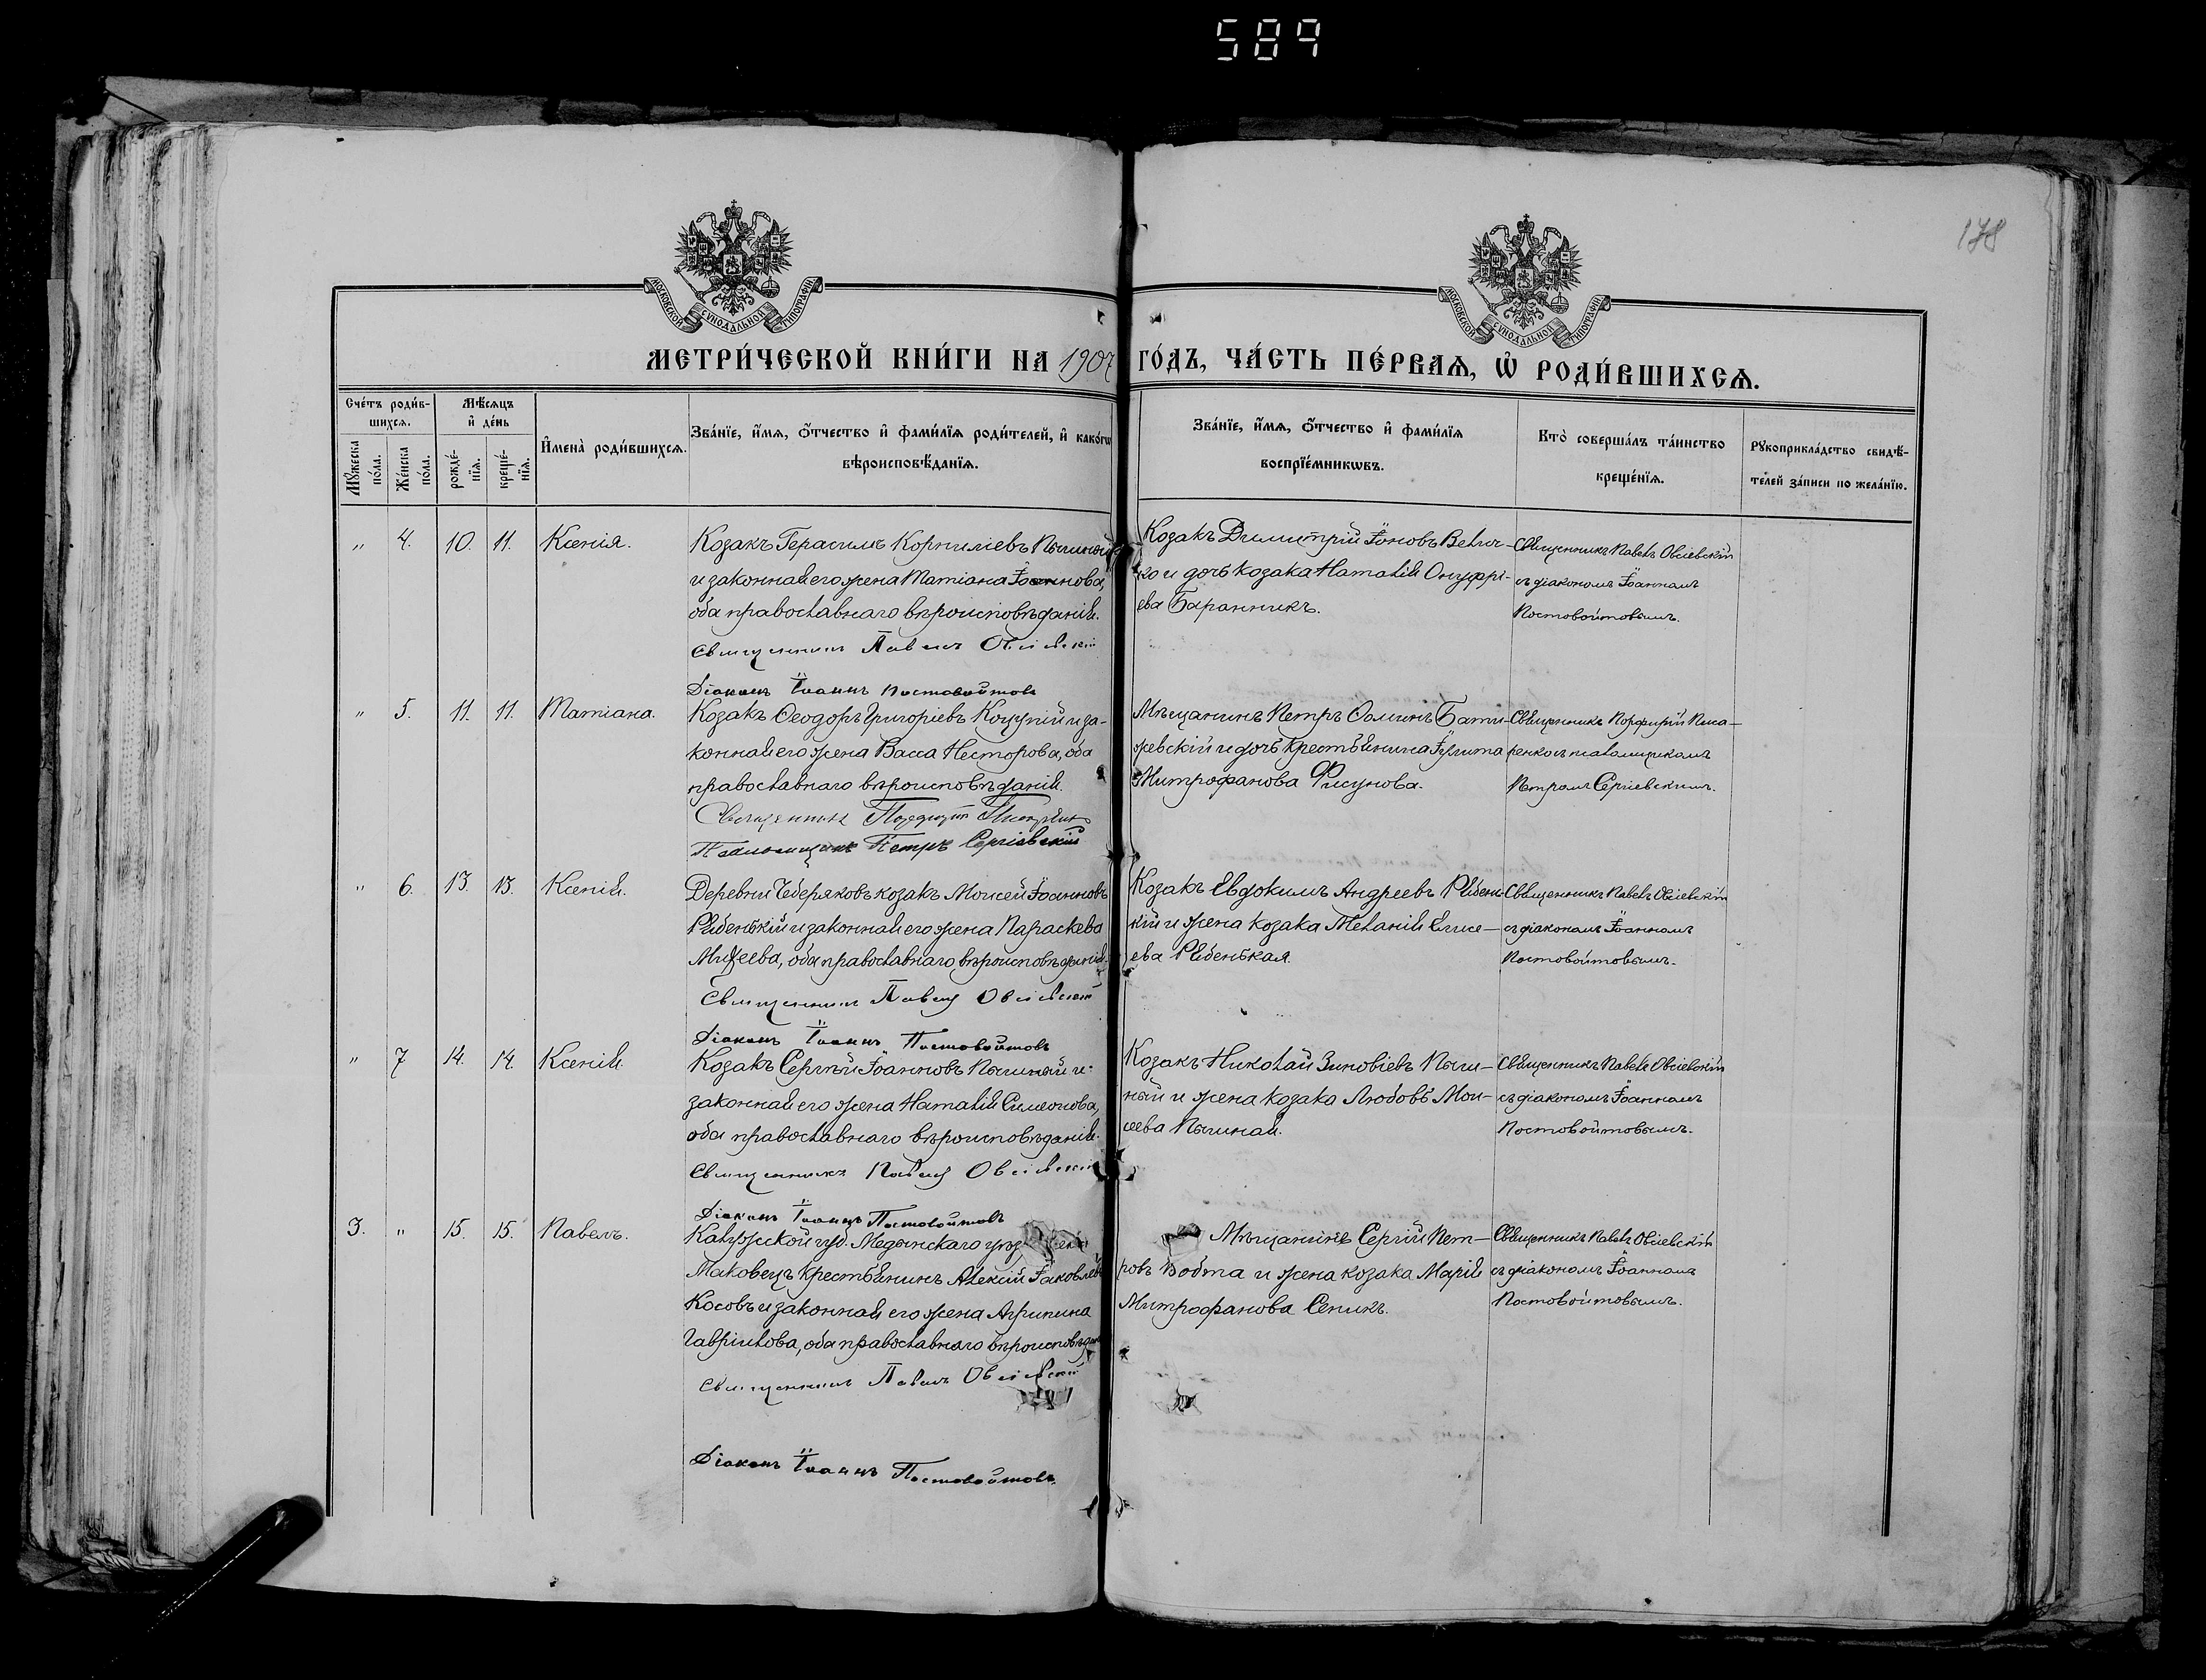 589
178
МОСКОВСКОЙ СѴНОДАЛЬНОЙ ТИПОГРАФІИ
МОСКОВСКОЙ СѴНОДАЛЬНОЙ ТИПОГРАФІИ
МЕТРИ́ЧЕСКОЙ КНИ́ГИ НА 1907 ГО́ДЪ, ЧА́СТЬ ПЕ́РВАѦ, Ѡ РОДИ́ВШИХСѦ.
Сче́тъ роди́в-
шихсѧ.
Мꙋ́жеска по́ла.
Же́нска по́ла.
Мѣ́сѧцъ
и҆ де́нь
рожде́-
нїѧ.
креще́-
нїѧ.
И҆мена̀ роди́вшихсѧ.
Зва́нїе, и҆́мѧ, ѻ҆́тчество и҆ фами́лїѧ роди́телей, и҆ како́гѡ
вѣроисповѣ́данїѧ.
Зва́нїе, и҆́мѧ, ѻ҆́тчество и҆ фами́лїѧ
воспрїе́мникѡвъ.
Кто̀ соверша́лъ та́инство
креще́нїѧ.
Рꙋкоприкла́дство свидѣ́-
телей за́писи по жела́нїю.
„ 4. 10. 11. Ксенія.
Козакъ Герасимъ Корниліевъ
и законная его жена Татіана Іоаннова,
оба православнаго вѣроисповѣданія.
Священникъ Павелъ Овсіевскій
Діаконъ Іоаннъ Постовойтовъ
Козакъ Димитрій Іоновъ Велич-
ко и дочь козака Наталія Онуфрі-
ева Баранникъ.
Священникъ Павелъ Овсіевскій
съ діакономъ Іоанномъ
Постовойтовымъ.
„ 5. 11. 11. Татіана.
Козакъ Ѳеодоръ Григоріевъ Коцупій и за-
конная его жена Васса Несторова, оба
православнаго вѣроисповѣданія.
Священникъ Порфирій Писаренко
Псаломщикъ Петръ Сергіевскій
Мѣщанинъ Петръ Ѳоминъ Бати-
жевскій и дочь крестьянина Іулита
Митрофанова Фисунова.
Священникъ Порфирій Писа-
ренко съ псаломщикомъ
Петромъ Сергіевскимъ.
„ 6. 13. 13. Ксенія.
Деревни Чеберяковъ козакъ Моисей Іоанновъ
Рябенькій и законная его жена Параскева
Мифеева, оба православнаго вѣроисповѣданія.
Священникъ Павелъ Овсіевскій
Діаконъ Іоаннъ Постовойтовъ
Козакъ Евдокимъ Андреевъ Рябень-
кій и жена козака Меланія Елисе-
ева Рябенькая.
Священникъ Павелъ Овсіевскій
съ діакономъ Іоанномъ
Постовойтовымъ.
„ 7 14. 14. Ксенія.
Козакъ Сергѣй Іоанновъ Пычиный и
законная его жена Наталія Симеонова,
оба православнаго вѣроисповѣданія.
Священникъ Павелъ Овсіевскій
Діаконъ Іоаннъ Постовойтовъ
Козакъ Николай Зиновіевъ Пычи-
ный и жена козака Любовь Мои-
сеева Пычиная.
Священникъ Павелъ Овсіевскій
съ діакономъ Іоанномъ
Постовойтовымъ.
3. „ 15. 15. Павелъ.
Калужской губ. Медынскаго
Маковецъ крестьянинъ Алексій Іаковлевъ
Косовъ и законная его жена Агрипина
Гавріилова, оба православнаго вѣроисповѣдан
Священникъ Павелъ Овсіевскій
Діаконъ Іоаннъ Постовойтовъ.
Мѣщанинъ Сергій Пет-
ровъ Вовта и жена козака Марія
Митрофанова Сепикъ.
Священникъ Павелъ Овсіевскій
съ діакономъ Іоанномъ
Постовойтовымъ.